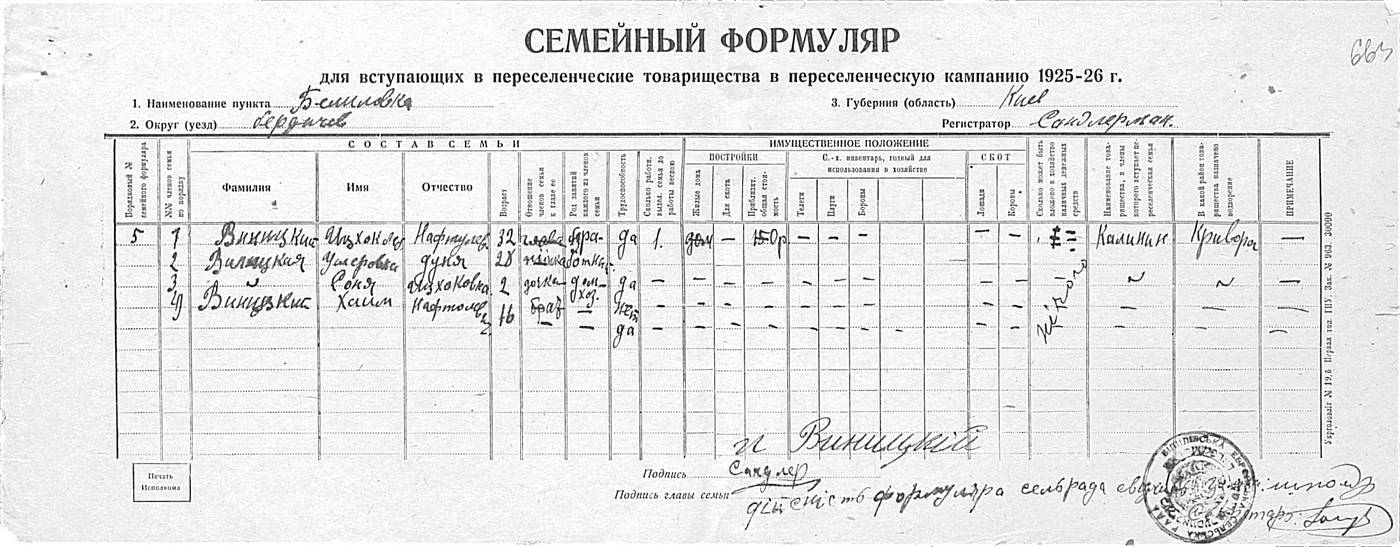 663
СЕМЕЙНЫЙ ФОРМУЛЯР
для вступающих в переселенческие товарищества в переселенческую кампанию 1925-26 г.
1. Наименование пункта Белиловка
3. Губерния (область) Киев
2. Округ (уезд) Бердичев
Регистратор Сандлерман.
СОСТАВ СЕМЬИ
ИМУЩЕСТВЕННОЕ ПОЛОЖЕНИЕ
ПОСТРОЙКИ
С.-х. инвентарь, годный для использования в хозяйстве
СКОТ
Порядковый № семейного формуляра
№№ членов семьи по порядку
Фамилия
Имя
Отчество
Возраст
Отношение членов семьи к главе ее
Род занятий каждого из членов семьи
Трудоспособность
Сколько работн. выдел. семья до работы весною
Жилые дома
Для скота
Приблизит. общая стоимость
Телеги
Плуги
Бороны
Лошади
Коровы
Сколько может быть вложено в хозяйство наличных денежных средств
Наименование товарищества, в члены которого вступает переселенческая семья
В какой район товарищества назначено водворение
ПРИМЕЧАНИЕ
5 1 Виницкий Нафтулев 32 глова да 1. дом — — — — — — Калинин Кривор —
2 Виницкая Ушеровка дуня 28
3 Соня Ицхоковка 2 дочка дом-хоз. да — — — — — — — —
4 Виницкий Хаим Нафтолев 16 брат — Нет — — — — — — — —
— — да — — — — — — — —
Виницкий
Подпись Сандлер
Подпись главы семьи
дійсність формуляра сельрада
Печать
Исполкома
Укрголовліт № 19,6 Первая тип. ГПУ. Зак. № 963. 30000